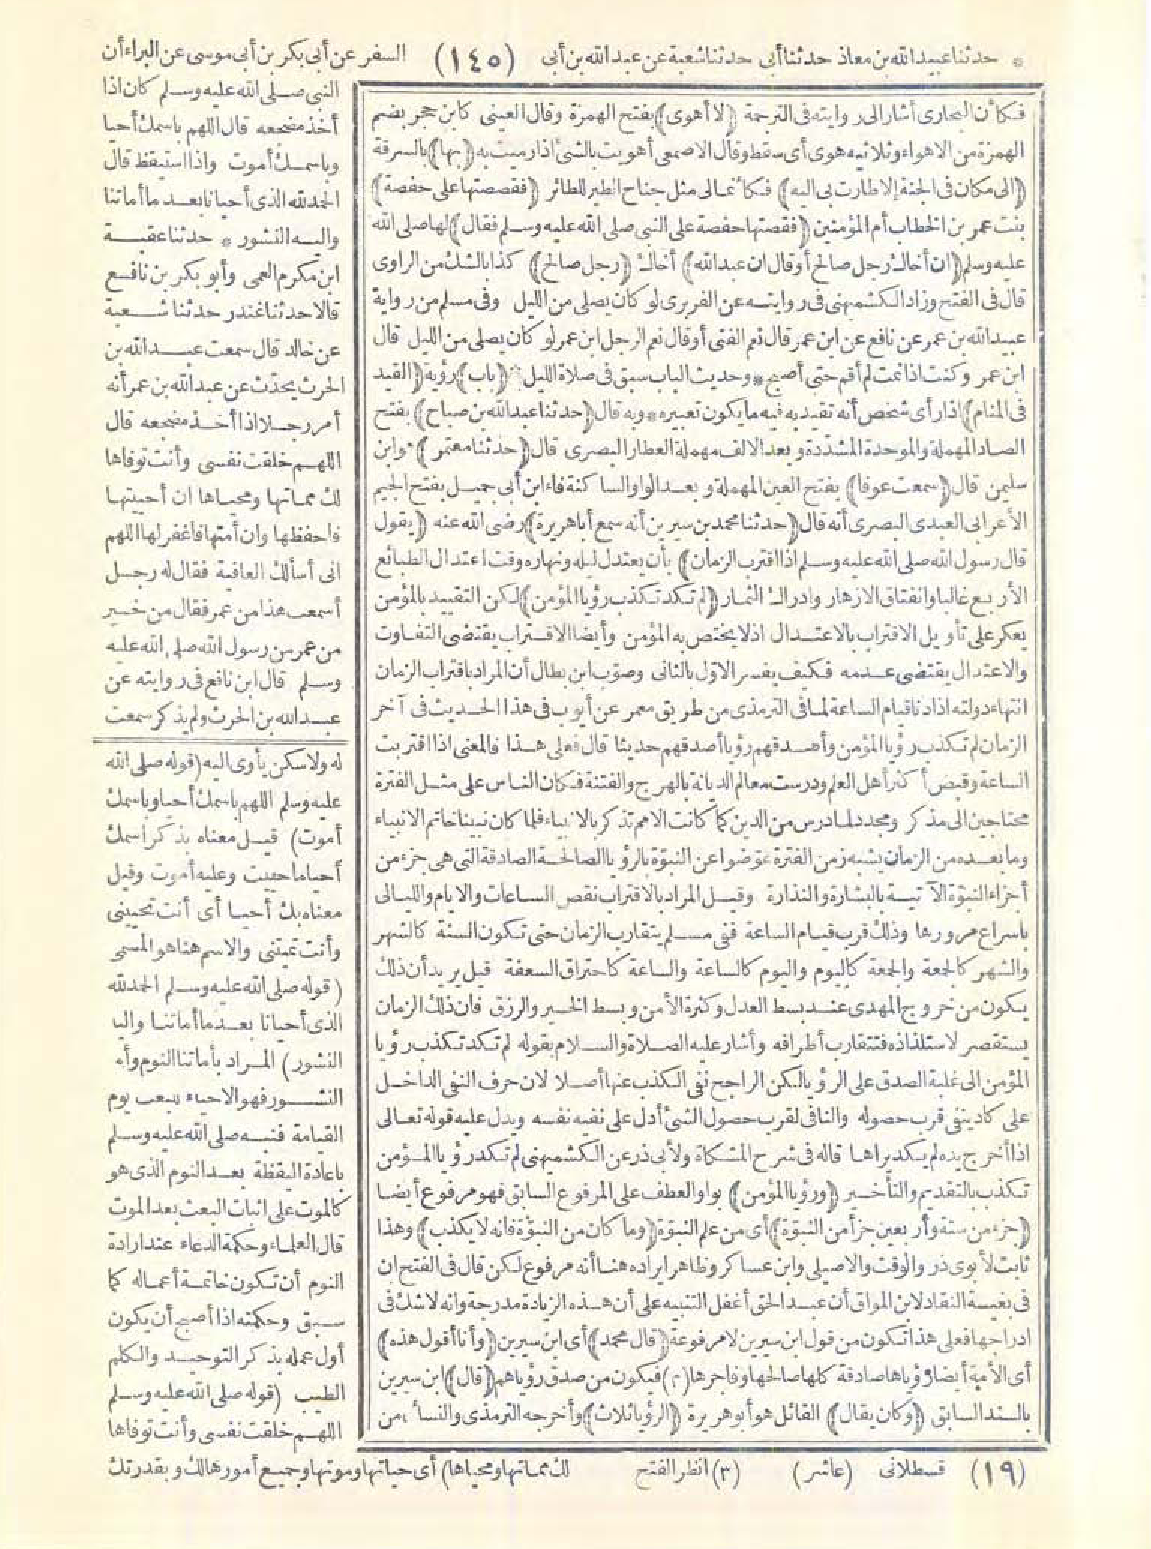 * حدثنا عبيد الله بن معاذ حدثنا أبي حدثنا شعبة عن عبد الله بن أبي (١٤٥) السفر عن أبي بكر بن أبي موسى عن البراء أن
فكأن البخاري أشار إلى روايته في الترجمة (لا أهوى) بفتح الهمزة وقال العيني كابن حجر بضم
الهمزة من الاهواء وثلاثيه هوى أي سقط وقال الاصمعي أهويت بالشئ اذا رميت به (بها) بالسرقة
(الى مكان في الجنة إلا طارت بي اليه) فكأنها لي مثل جناح الطير للطائر (فقصصتها على حفصة)
بنت عمر بن الخطاب أم المؤمنين (فقصتها حفصة على النبي صلى الله عليه وسلم فقال) لها صلى الله
عليه وسلم (ان أخاك رجل صالح أو قال ان عبد الله) أخاك (رجل صالح) كذا بالشك من الراوي
قال في الفتح وزاد الكشميهني في روايته عن الفربري لو كان يصلي من الليل وفي مسلم من رواية
عبيد الله بن عمر عن نافع عن ابن عمر قال نعم الفتى أو قال نعم الرجل ابن عمر لو كان يصلي من الليل قال
ابن عمر وكنت اذا نمت لم أقم حتى أصبح * وحديث الباب سبق في صلاة الليل * (باب) رؤية (القيد
في المنام) اذا رأى شخص أنه تقيد به فيه ما يكون تعبيره * وبه قال (حدثنا عبد الله بن صباح) بفتح
الصاد المهملة والموحدة المشددة وبعد الالف مهملة العطار البصري قال (حدثنا معتمر) هو ابن
سليمن قال (سمعت عوفا) بفتح العين المهملة وبعد الواو الساكنة فاء ابن أبي جميل بفتح الجيم
الأعرابي العبدي البصري أنه قال (حدثنا محمد بن سيرين أنه سمع أبا هريرة) رضي الله عنه (يقول
قال رسول الله صلى الله عليه وسلم اذا اقترب الزمان) بأن يعتدل ليله ونهاره وقت اعتدال الطبائع
الأربع غالبا وانفتاق الازهار وادراك الثمار (لم تكد تكذب رؤيا المؤمن) لكن التقييد بالمؤمن
يعكر على تأويل الاقتراب بالاعتدال اذ لا يختص به المؤمن وأيضا الاقتراب يقتضي التفاوت
والاعتدال يقتضي عدمه فكيف يفسر الاول بالثاني وصوب ابن بطال أن المراد باقتراب الزمان
انتهاء دولته اذا دنا قيام الساعة لما في الترمذي من طريق معمر عن أيوب في هذا الحديث في آخر
الزمان لم تكذب رؤيا المؤمن وأصدقهم رؤيا أصدقهم حديثا قال فعلى هذا فالمعنى اذا اقتربت
الساعة وقبض أكثر أهل العلم ودرست معالم الديانة بالهرج والفتنة فكان الناس على مثل الفترة
محتاجين الى مذكر ومجدد لما درس من الدين كما كانت الامم تذكر بالانبياء فلما كان نبينا خاتم الانبياء
وما بعده من الزمان يشبه زمن الفترة عوضوا عن النبوة بالرؤيا الصالحة الصادقة التي هي جزء من
أجزاء النبوة الآتية بالبشارة والنذارة وقيل المراد بالاقتراب نقص الساعات والايام والليالي
باسراع مرورها وذلك قرب قيام الساعة ففي مسلم يتقارب الزمان حتى تكون السنة كالشهر
والشهر كالجمعة والجمعة كاليوم واليوم كالساعة والساعة كاحتراق السعفة قيل يريد أن ذلك
يكون من خروج المهدي عند بسط العدل وكثرة الأمن وبسط الخير والرزق فان ذلك الزمان
يستقصر لاستلذاذه فتتقارب أطرافه وأشار عليه الصلاة والسلام بقوله لم تكد تكذب رؤيا
المؤمن الى غلبة الصدق على الرؤيا لكن الراجح نفي الكذب عنها أصلا لان حرف النفي الداخل
على كاد ينفي قرب حصوله والنافي لقرب حصول الشئ أدل على نفيه نفسه ويدل عليه قوله تعالى
اذا أخرج يده لم يكد يراها قاله في شرح المشكاة ولأبي ذر عن الكشميهني لم تكد رؤيا المؤمن
تكذب بالتقديم والتأخير (ورؤيا المؤمن) بواو العطف على المرفوع السابق فهو مرفوع أيضا
(جزء من ستة وأربعين جزأ من النبوة) أي من علم النبوة (وما كان من النبوة فانه لا يكذب) وهذا
ثابت لأبوي ذر والوقت والاصيلي وابن عساكر وظاهر ايراده هنا أنه مرفوع لكن قال في الفتح ان
في بغية النقاد لابن المواق أن عبد الحق أغفل التنبيه على أن هذه الزيادة مدرجة وانه لا شك في
ادراجها فعلى هذا تكون من قول ابن سيرين لا مرفوعة (قال محمد) أي ابن سيرين (وأنا أقول هذه)
أي الأمة أيضا رؤياها صادقة كلها صالحها وفاجرها (٣) فيكون من صدق رؤياهم (قال) ابن سيرين
بالسند السابق (وكان يقال) القائل هو أبو هريرة (الرؤيا ثلاث) وأخرجه الترمذي والنسائي من
النبي صلى الله عليه وسلم كان اذا
أخذ مضجعه قال اللهم باسمك أحيا
وباسمك أموت واذا استيقظ قال
الحمد لله الذي أحيانا بعد ما أماتنا
واليه النشور * حدثنا عقبة
ابن مكرم العمي وأبو بكر بن نافع
قالا حدثنا غندر حدثنا شعبة
عن خالد قال سمعت عبد الله بن
الحرث يحدث عن عبد الله بن عمر أنه
أمر رجلا اذا أخذ مضجعه قال
اللهم خلقت نفسي وأنت توفاها
لك مماتها ومحياها ان أحييتها
فاحفظها وان أمتها فاغفر لها اللهم
اني أسألك العافية فقال له رجل
أسمعت هذا من عمر فقال من خير
من عمر من رسول الله صلى الله عليه
وسلم قال ابن نافع في روايته عن
عبد الله بن الحرث ولم يذكر سمعت
له ولا سكن يأوي اليه (قوله صلى الله
عليه وسلم اللهم باسمك أحيا وباسمك
أموت) قيل معناه بذكر اسمك
أحيا ما حييت وعليه أموت وقيل
معناه بك أحيا أي أنت تحييني
وأنت تميتني والاسم هنا هو المسمى
(قوله صلى الله عليه وسلم الحمد لله
الذي أحيانا بعد ما أماتنا واليه
النشور) المراد بأماتنا النوم وأما
النشور فهو الاحياء للبعث يوم
القيامة فنبه صلى الله عليه وسلم
باعادة اليقظة بعد النوم الذي هو
كالموت على اثبات البعث بعد الموت
قال العلماء وحكمة الدعاء عند ارادة
النوم أن تكون خاتمة أعماله كما
سبق وحكمته اذا أصبح أن يكون
أول عمله بذكر التوحيد والكلم
الطيب (قوله صلى الله عليه وسلم
اللهم خلقت نفسي وأنت توفاها
لك مماتها ومحياها) أي حياتها وموتها وجميع أمورها لك وبقدرتك
(١٩) قسطلاني (عاشر) (٣) انظر الفتح